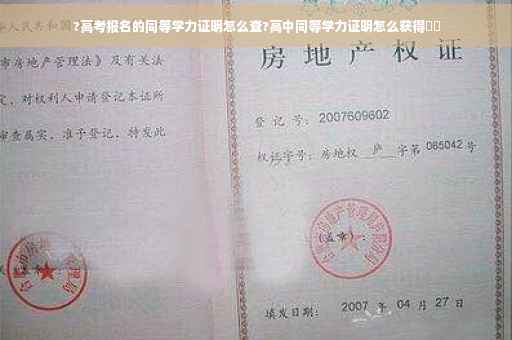 ?高考报名的同等学力证明怎么查?高中同等学力证明怎么获得
人民共和国
市房地产管理法》及有关法
定，对权利人申请登记本证所
审查属实，准予登记，特发此
房地产权证
登记号：2007609602
权证字号：房地权 庐 字第 065042 号
(盖章)：
填发日期：2007 年 04 月 27 日